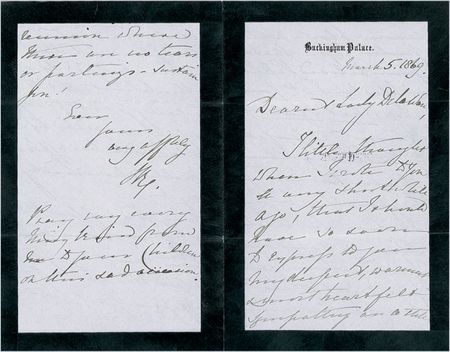 Buckingham Palace.
March 5. 1869.
Dearest Lady Delawarr,
I little thought
when I wrote to you
so very short a while
ago, that I should
have so soon
to express to you
my deepest, warmest
& most heartfelt
sympathy on
reunion where
there are no tears
or partings – sustain
you!
Ever
yours
very affly
VRg.
Pray say every
thing kind from
me to your children
on this sad occasion.